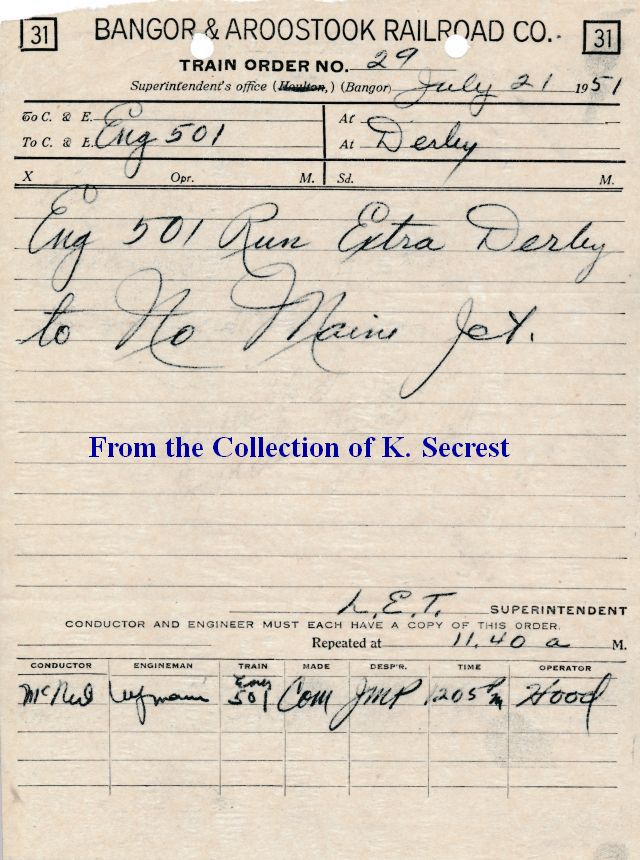 31 BANGOR & AROOSTOOK RAILROAD CO. 31
TRAIN ORDER NO. 29
Superintendent's office (Houlton,) (Bangor) July 21 1951
To C. & E. At
To C. & E. Eng 501 At Derby
X Opr. M. Sd. M.
Eng 501 Run Extra Derby
to No Maine Jct.
From the Collection of K. Secrest
L.E.T. SUPERINTENDENT
CONDUCTOR AND ENGINEER MUST EACH HAVE A COPY OF THIS ORDER.
Repeated at 11.40 a M.
CONDUCTOR ENGINEMAN TRAIN MADE DESP'R. TIME OPERATOR
McNeil Eng 501 Com JMP 1205 Pm Hood